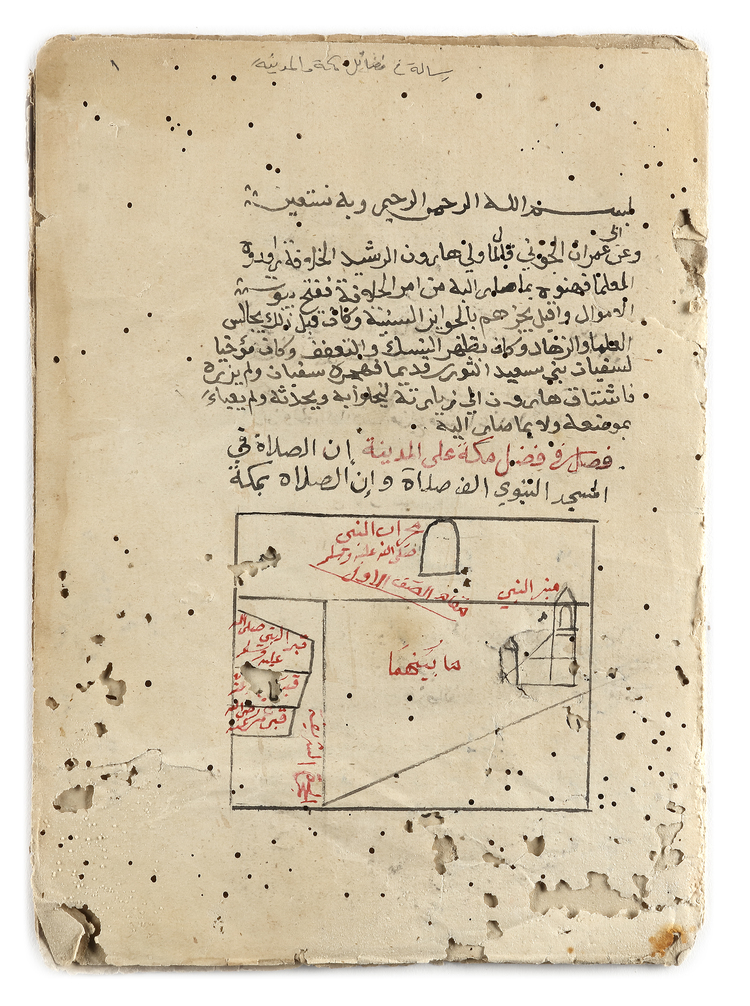 رسالة في فضائل مكة والمدينة
١
بسم الله الرحمن الرحيم وبه نستعين
وعن عمران الجوني قال لما ولي هارون الرشيد الخلافة
العلما فهنوه بما صار اليه من امر الخلافة ففتح بيوت
الاموال واقبل يجيزهم بالجوايز السنية وكان قبل ذلك يجالس
العلما والزهاد وكان يظهر النسك والتعفف وكان مؤخيا
لسفيان بن سعيد الثوري قديما فهجره سفيان ولم يزره
فاشتاق هارون الي زيارته ويحدثه ولم يعباء
بموضعه ولا بما صار اليه
فصل في فضل مكة على المدينة إن الصلاة في
المسجد النبوي الف صلاة وإن الصلاه بمكة
محراب النبي
صلى الله عليه وسلم
الصف الاول
منبر النبي
ما بينهما
قبر النبي صلى الله
عليه وسلم
قبر
قبر عمر